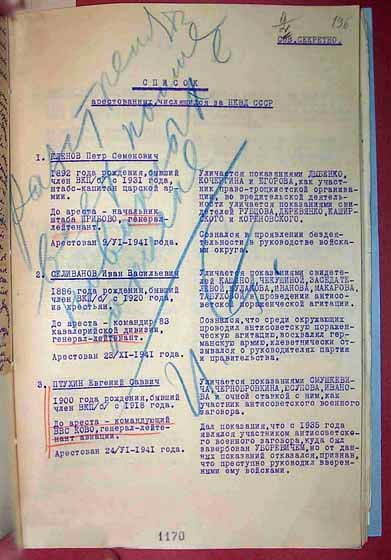 196
СОВ.СЕКРЕТНО.
СПИСОК
арестованных,числящихся за НКВД СССР
1. КЛЕНОВ Петр Семенович
1892 года рождения,бывший
член ВКП/б/ с 1931 года,
штабс-капитан царской ар-
мии.
До ареста - начальник
штаба ПРИБОВО, генерал-
лейтенант.
Арестован 9/VI-1941 года.
Уличается показаниями
КОЧЕРГИНА и ЕГОРОВА,как участ-
ник право-троцкистской организа-
ции, во вредительской деятель-
ности уличается показ. свиде-
телей РУБЦОВА,ДЕРЕВЯНКО,
СКОГО и КОРЕНОВСКОГО.
Сознался в проявлении бездея-
тельности в руководстве войска-
ми округа.
2. СЕЛИВАНОВ Иван Васильевич
1886 года рождения,бывший
член ВКП/б/ с 1920 года,
из крестьян.
До ареста - командир 83
кавалерийской дивизии,
генерал-лейтенант.
Арестован 23/XI-1941 года.
Уличается показаниями свидете-
лей ЧЕКУШИНОЙ,
ИВАНОВА, МАКАРОВА,
в проведении антисо-
ветской агитации.
Сознался, что среди окружающих
проводил антисоветскую поражен-
ческую агитацию, восхвалял гер-
манскую армию,клеветнически от-
зывался о руководителях партии
и правительства.
3. ПТУХИН Евгений Саввич
1900 года рождения,бывший
член ВКП/б/ с 1918 года.
До ареста - командующий
ВВС КОВО,генерал-лейте-
нант авиации.
Арестован 24/VI-1941 года.
Уличается показаниями СМУШКЕВИ-
ЧА,ЧЕРНОБРОВКИНА,ЮСУПОВА,ИВАНО-
ВА и очной ставкой с ним,как
участник антисоветского военного
заговора.
Дал показания, что с 1935 года
являлся участником антисоветс-
кого военного заговора,куда был
завербован УБОРЕВИЧЕМ, но от дан-
ных показаний отказался,признав,
что преступно руководил вверен-
ными ему войсками.
1170